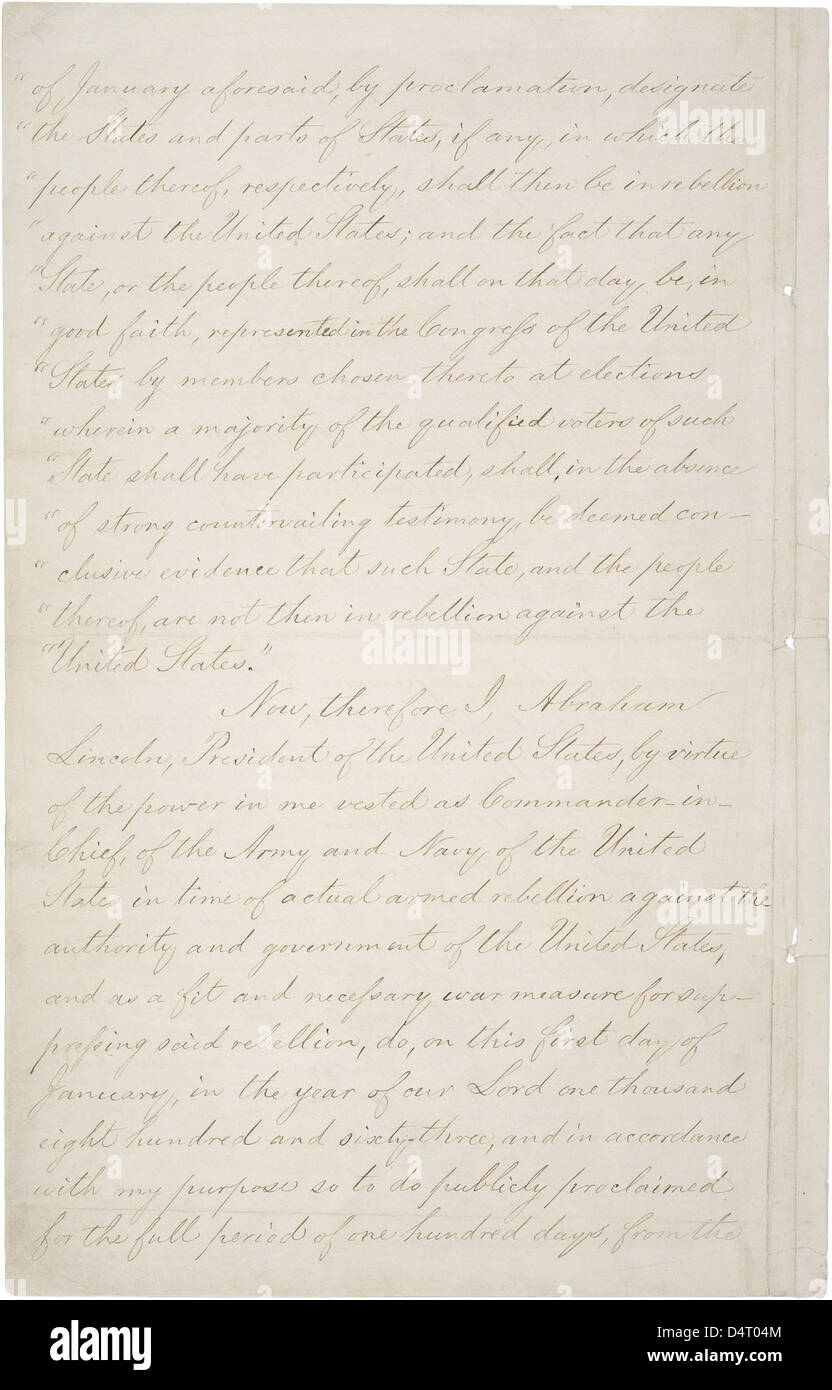 " of January aforesaid, by proclamation, designate
" the States and parts of States, if any, in which the
" people thereof, respectively, shall then be in rebellion
" against the United States; and the fact that any
" State, or the people thereof, shall on that day be, in
" good faith, represented in the Congress of the United
" States by members chosen thereto at elections
" wherein a majority of the qualified voters of such
" State shall have participated, shall, in the absence
" of strong countervailing testimony, be deemed con-
" clusive evidence that such State, and the people
" thereof, are not then in rebellion against the
" United States."
Now, therefore I, Abraham
Lincoln, President of the United States, by virtue
of the power in me vested as Commander-in-
Chief, of the Army and Navy of the United
States in time of actual armed rebellion against the
authority and government of the United States,
and as a fit and necessary war measure for sup-
pressing said rebellion, do, on this first day of
January, in the year of our Lord one thousand
eight hundred and sixty-three, and in accordance
with my purpose so to do publicly proclaimed
for the full period of one hundred days, from the
alamy
a
alamy
Image ID: D4T04M
www.alamy.com